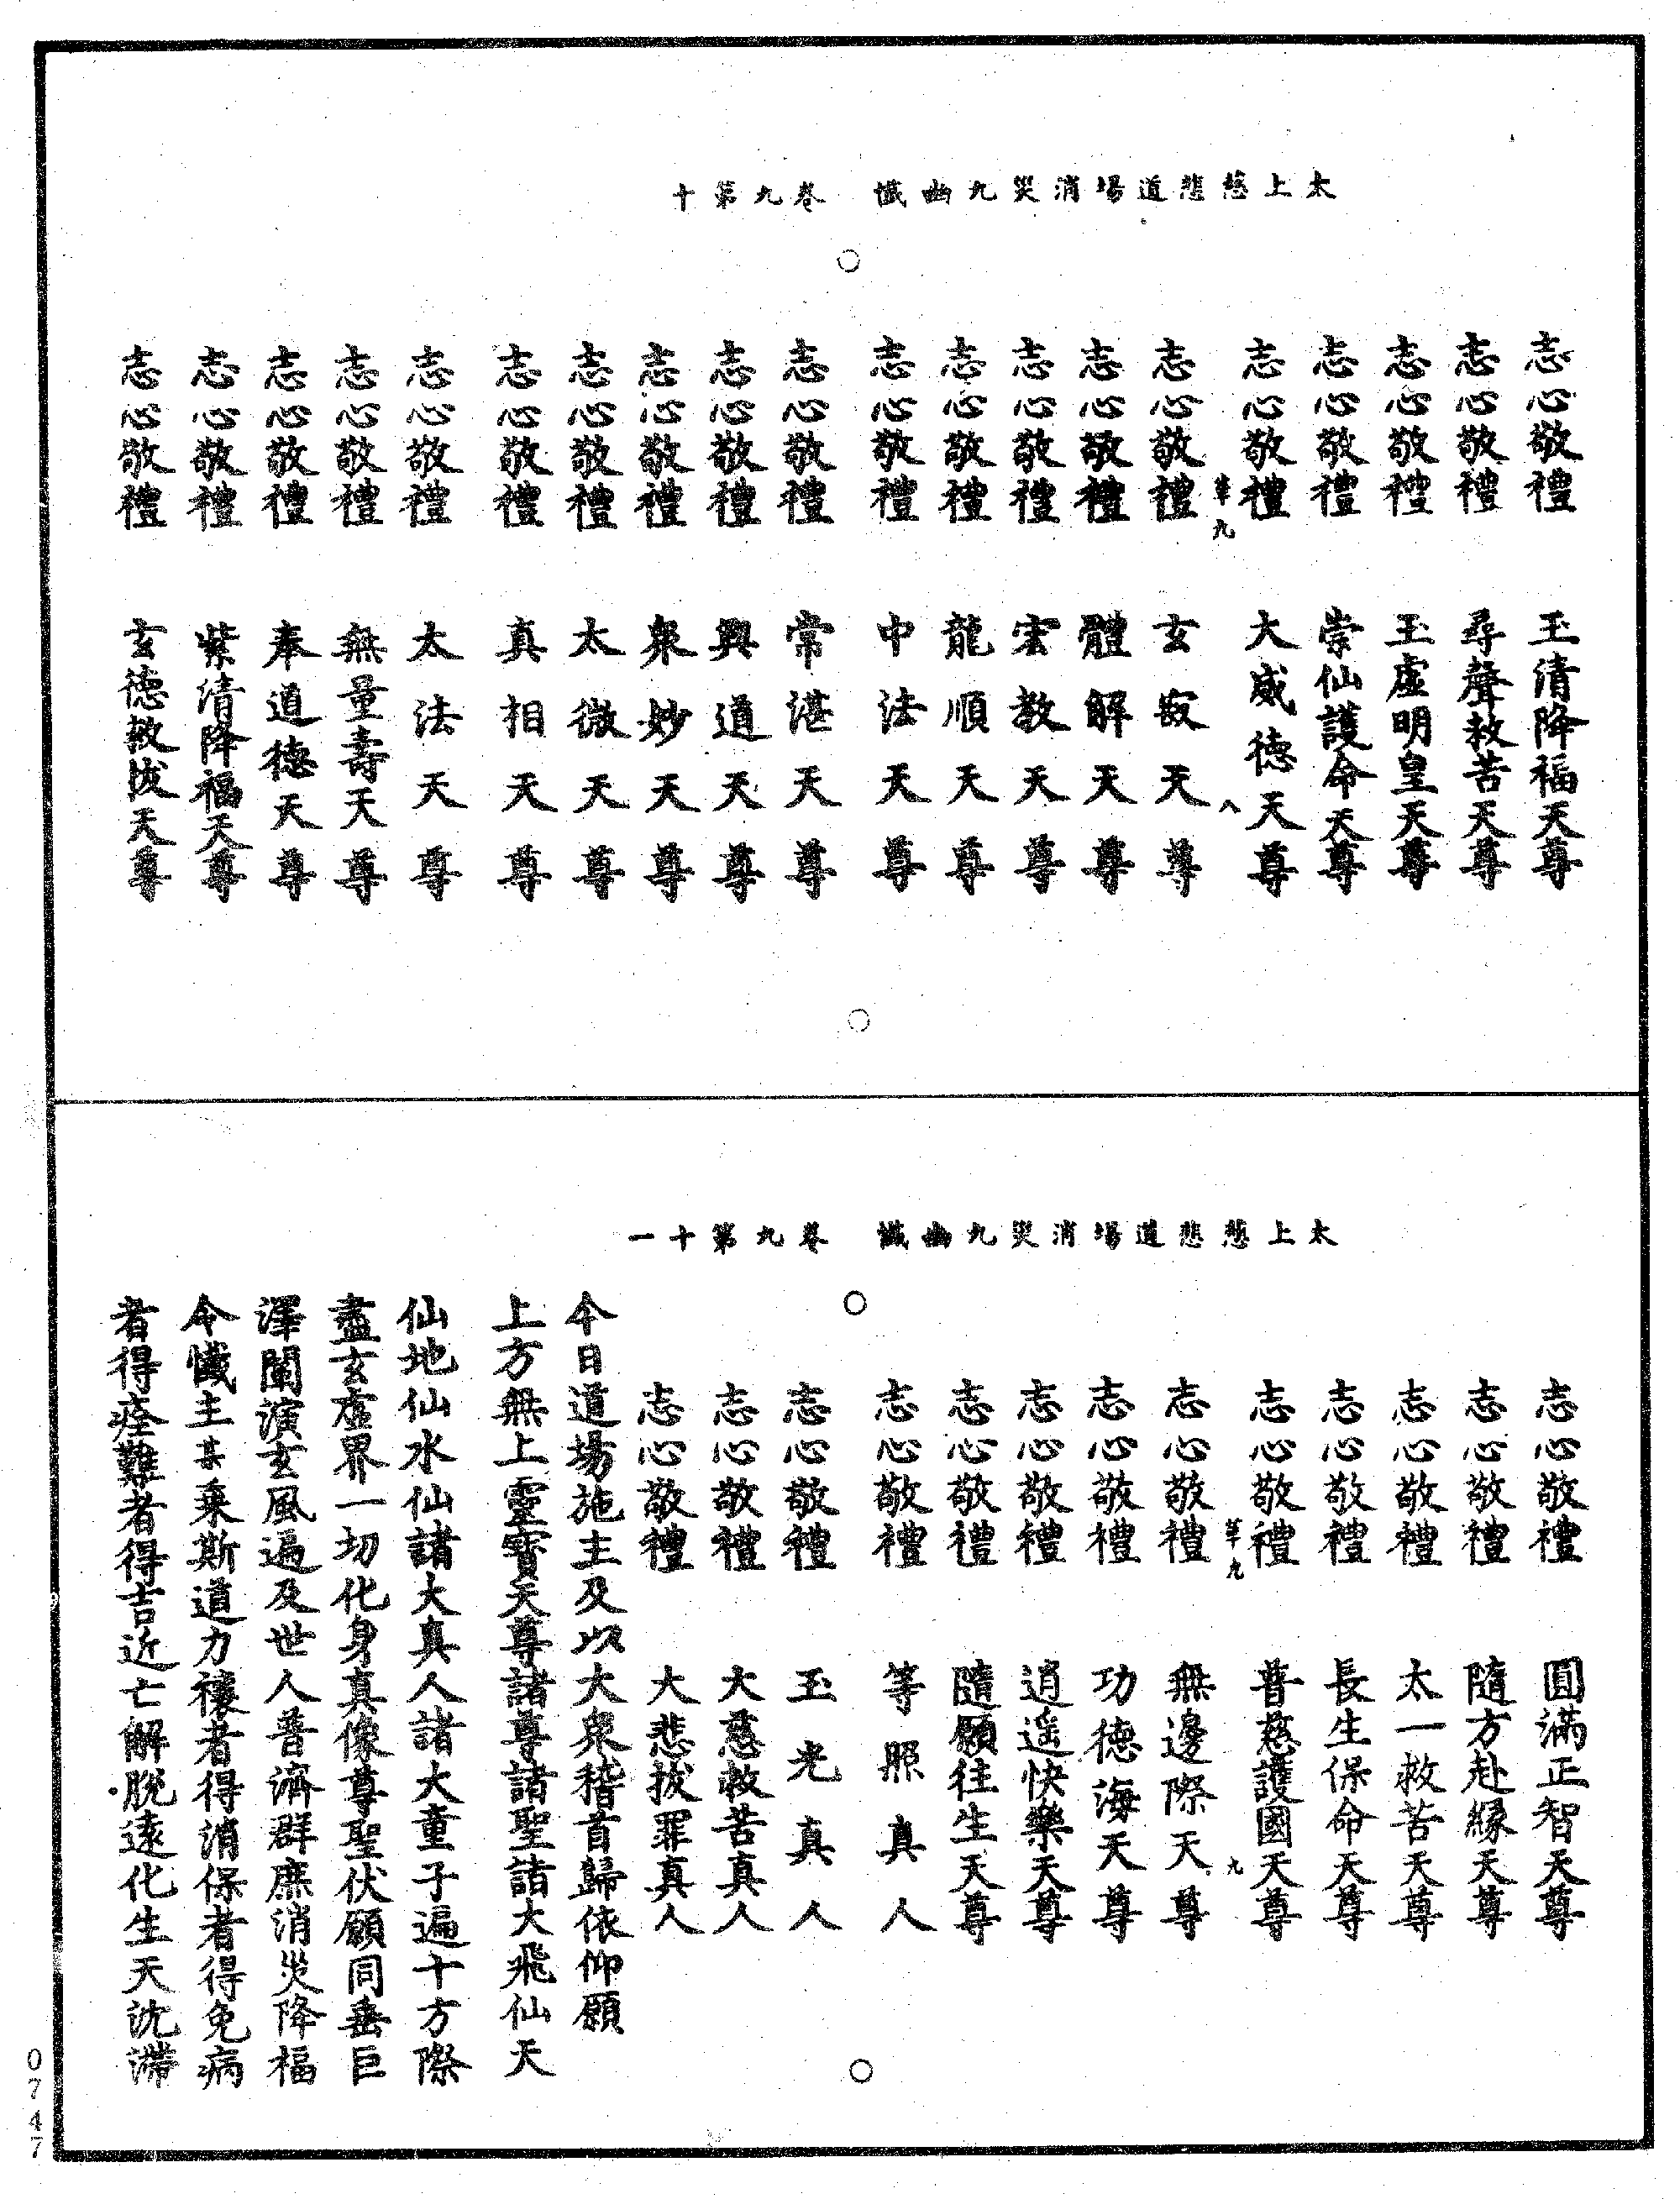 太上慈悲道場消災九幽懺　卷九第十
志心敬禮　玉清降福天尊
志心敬禮　尋聲救苦天尊
志心敬禮　玉虛明皇天尊
志心敬禮　崇仙護命天尊
志心敬禮　大威德天尊
華九　八
志心敬禮　玄寂天尊
志心敬禮　體解天尊
志心敬禮　宏教天尊
志心敬禮　龍順天尊
志心敬禮　中法天尊
志心敬禮　常湛天尊
志心敬禮　興道天尊
志心敬禮　衆妙天尊
志心敬禮　太微天尊
志心敬禮　真相天尊
志心敬禮　太法天尊
志心敬禮　無量壽天尊
志心敬禮　奉道德天尊
志心敬禮　紫清降福天尊
志心敬禮　玄德救拔天尊
太上慈悲道場消災九幽懺　卷九第十一
志心敬禮　圓滿正智天尊
志心敬禮　隨方赴緣天尊
志心敬禮　太一救苦天尊
志心敬禮　長生保命天尊
志心敬禮　普慈護國天尊
華九　九
志心敬禮　無邊際天尊
志心敬禮　功德海天尊
志心敬禮　逍遙快樂天尊
志心敬禮　隨願往生天尊
志心敬禮　等照真人
志心敬禮　玉光真人
志心敬禮　大慈救苦真人
志心敬禮　大悲拔罪真人
今日道場施主及以大衆稽首歸依仰願
上方無上靈寶天尊諸尊諸聖諸大飛仙天
仙地仙水仙諸大真人諸大童子遍十方際
盡玄虛界一切化身真像尊聖伏願同垂巨
澤闡演玄風遍及世人普濟群庶消災降福
今懺主某乗斯道力禳者得消保者得免病
者得痊難者得吉近亡解脫遠化生天沈滯
0747